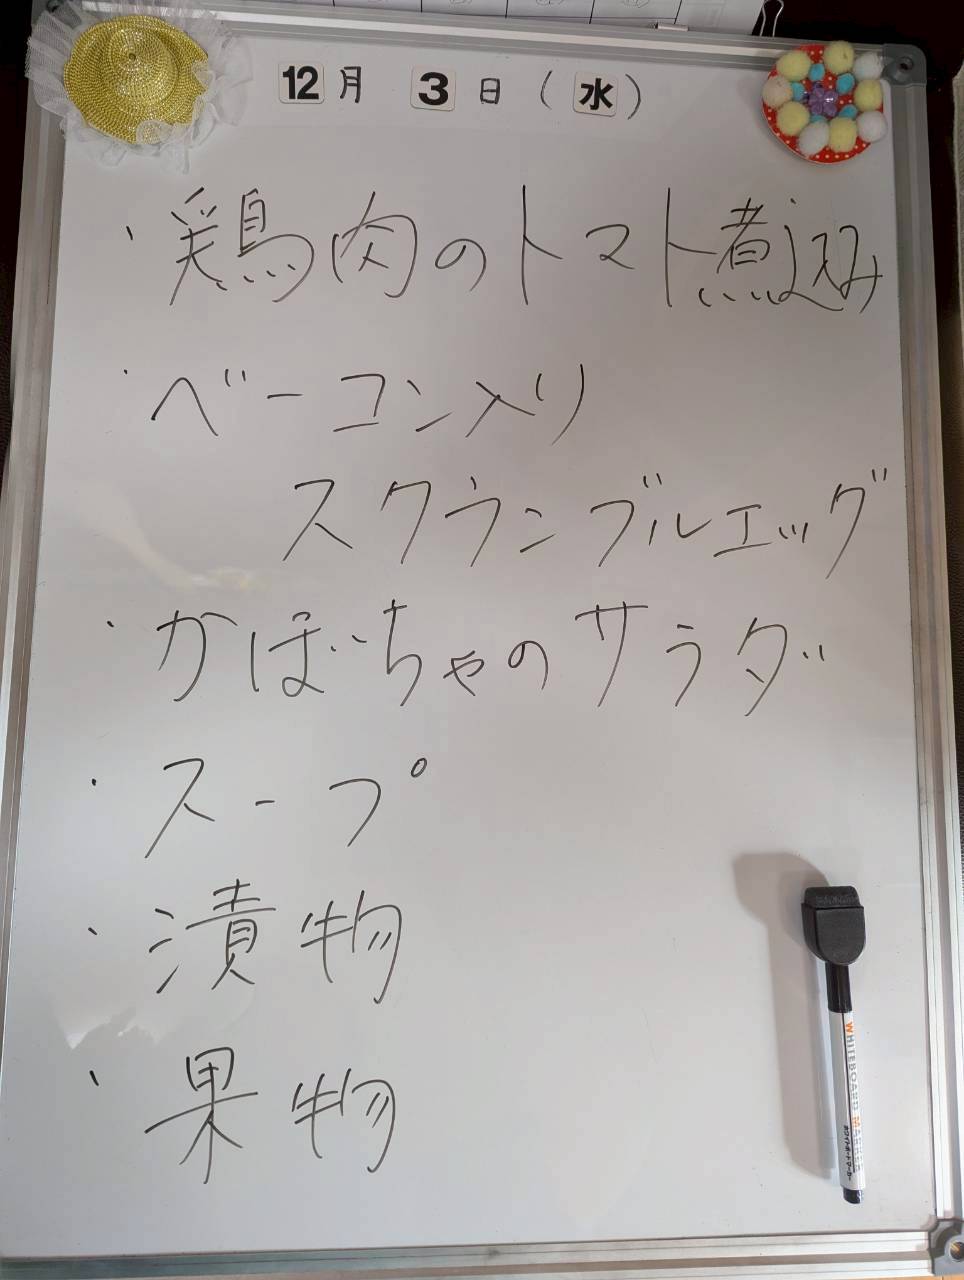 12月 3日(水)
・鶏肉のトマト煮込み
・ベーコン入り
スクランブルエッグ
・かぼちゃのサラダ
・スープ
・漬物
・果物
WHITEBOARD MARKER
ホワイトボードマーカー